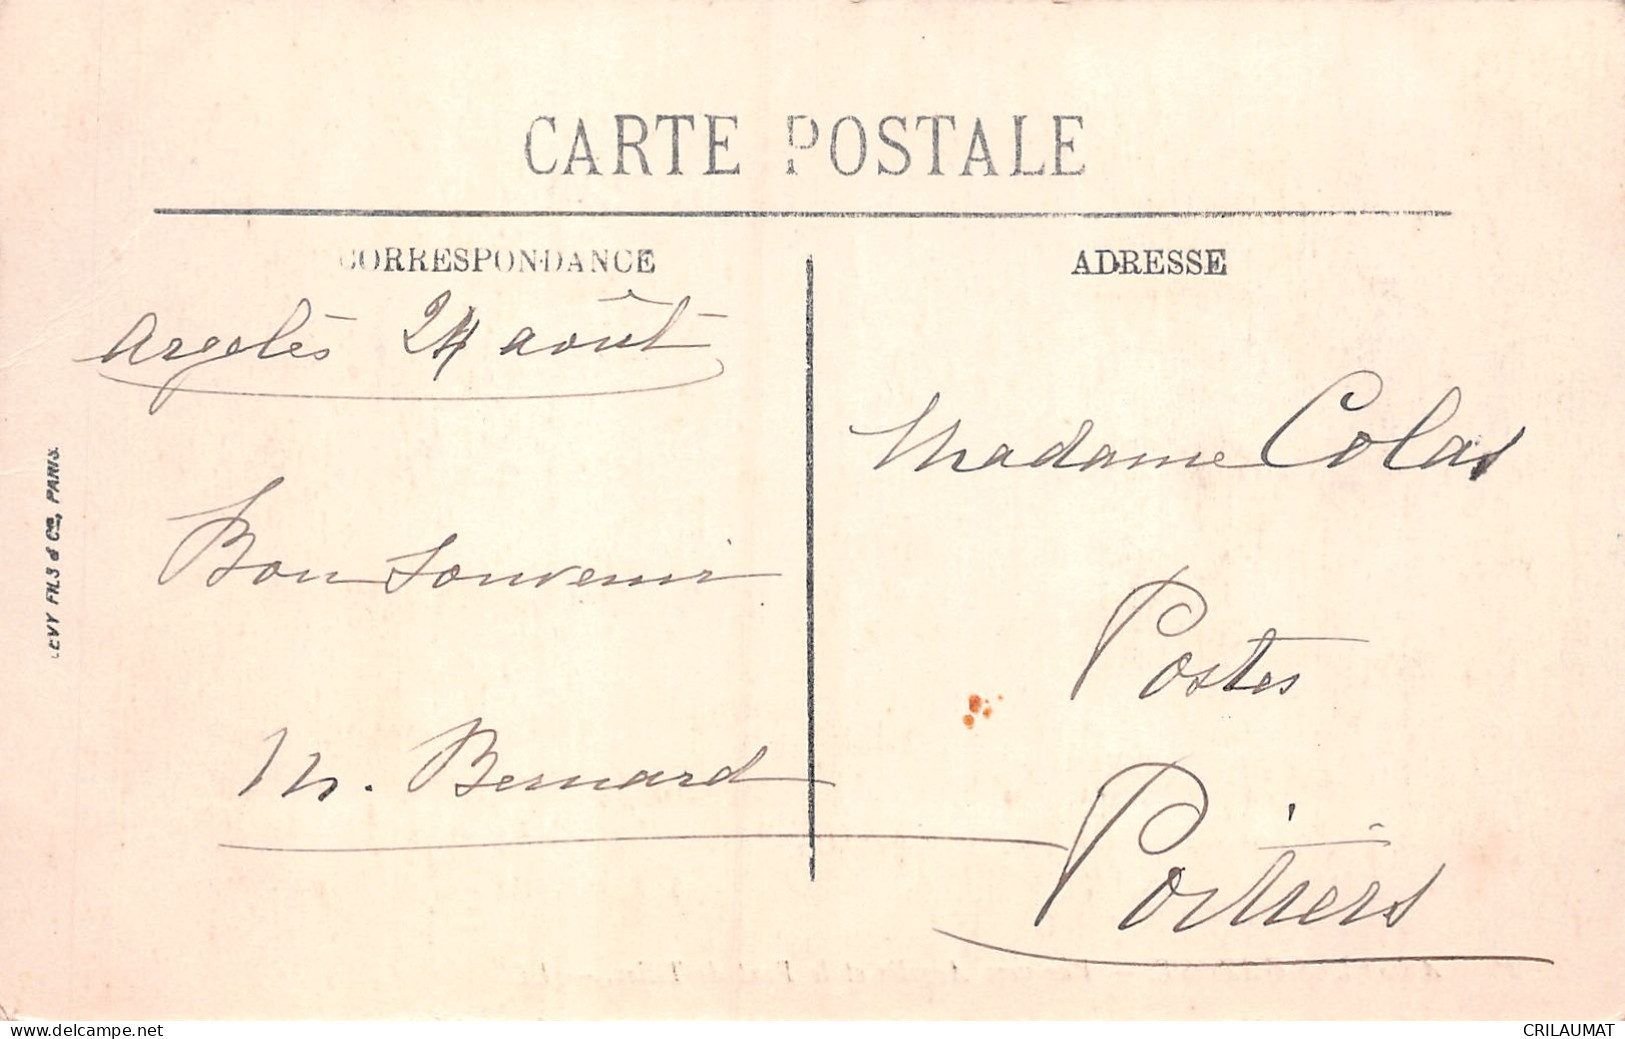 CARTE POSTALE
CORRESPONDANCE
ADRESSE
Argelès 24 août
Bon souvenir
M. Bernard
Madame Colas
Postes
Poitiers
LEVY FILS & Cie, PARIS.
www.delcampe.net
CRILAUMAT